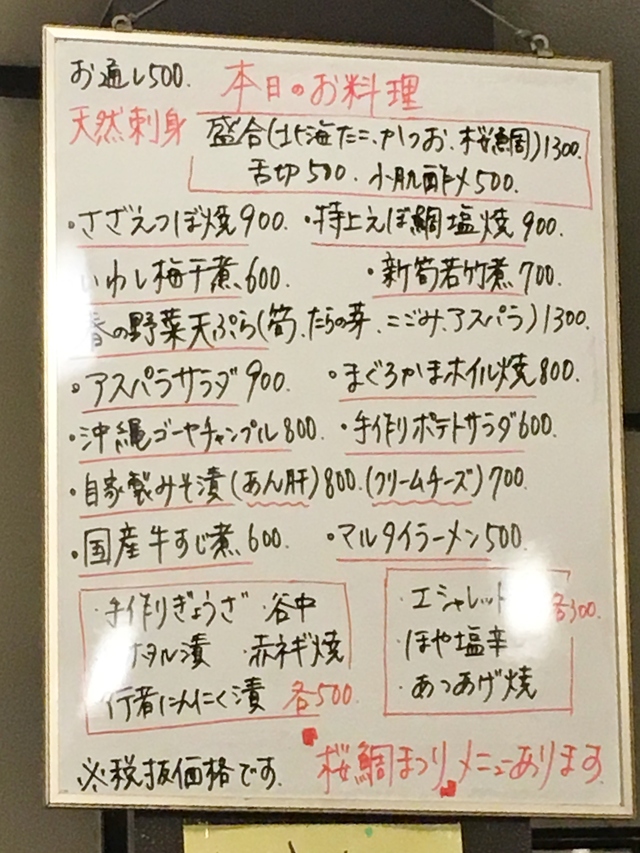 お通し500. 本日のお料理
天然刺身 盛合(北海たこ、かつお、桜鯛)1300.
舌切500. 小肌酢〆500.
・さざえつぼ焼900. ・特上えぼ鯛塩焼900.
いわし梅干煮.600. ・新筍若竹煮.700.
春の野菜天ぷら(筍、たらの芽、こごみ、アスパラ)1300.
・アスパラサラダ900. ・まぐろかまホイル焼800.
・沖縄ゴーヤチャンプル800. ・手作りポテトサラダ600.
・自家製みそ漬(あん肝)800.(クリームチーズ)700.
・国産牛すじ煮.600. ・マルタイラーメン500.
・手作りぎょうざ ・谷中
ホタル漬 ・赤ネギ焼
行者にんにく漬 各500.
・エシャレット 各300.
・ほや塩辛
・あつあげ焼
※税抜価格です.
桜鯛まつりメニューあります